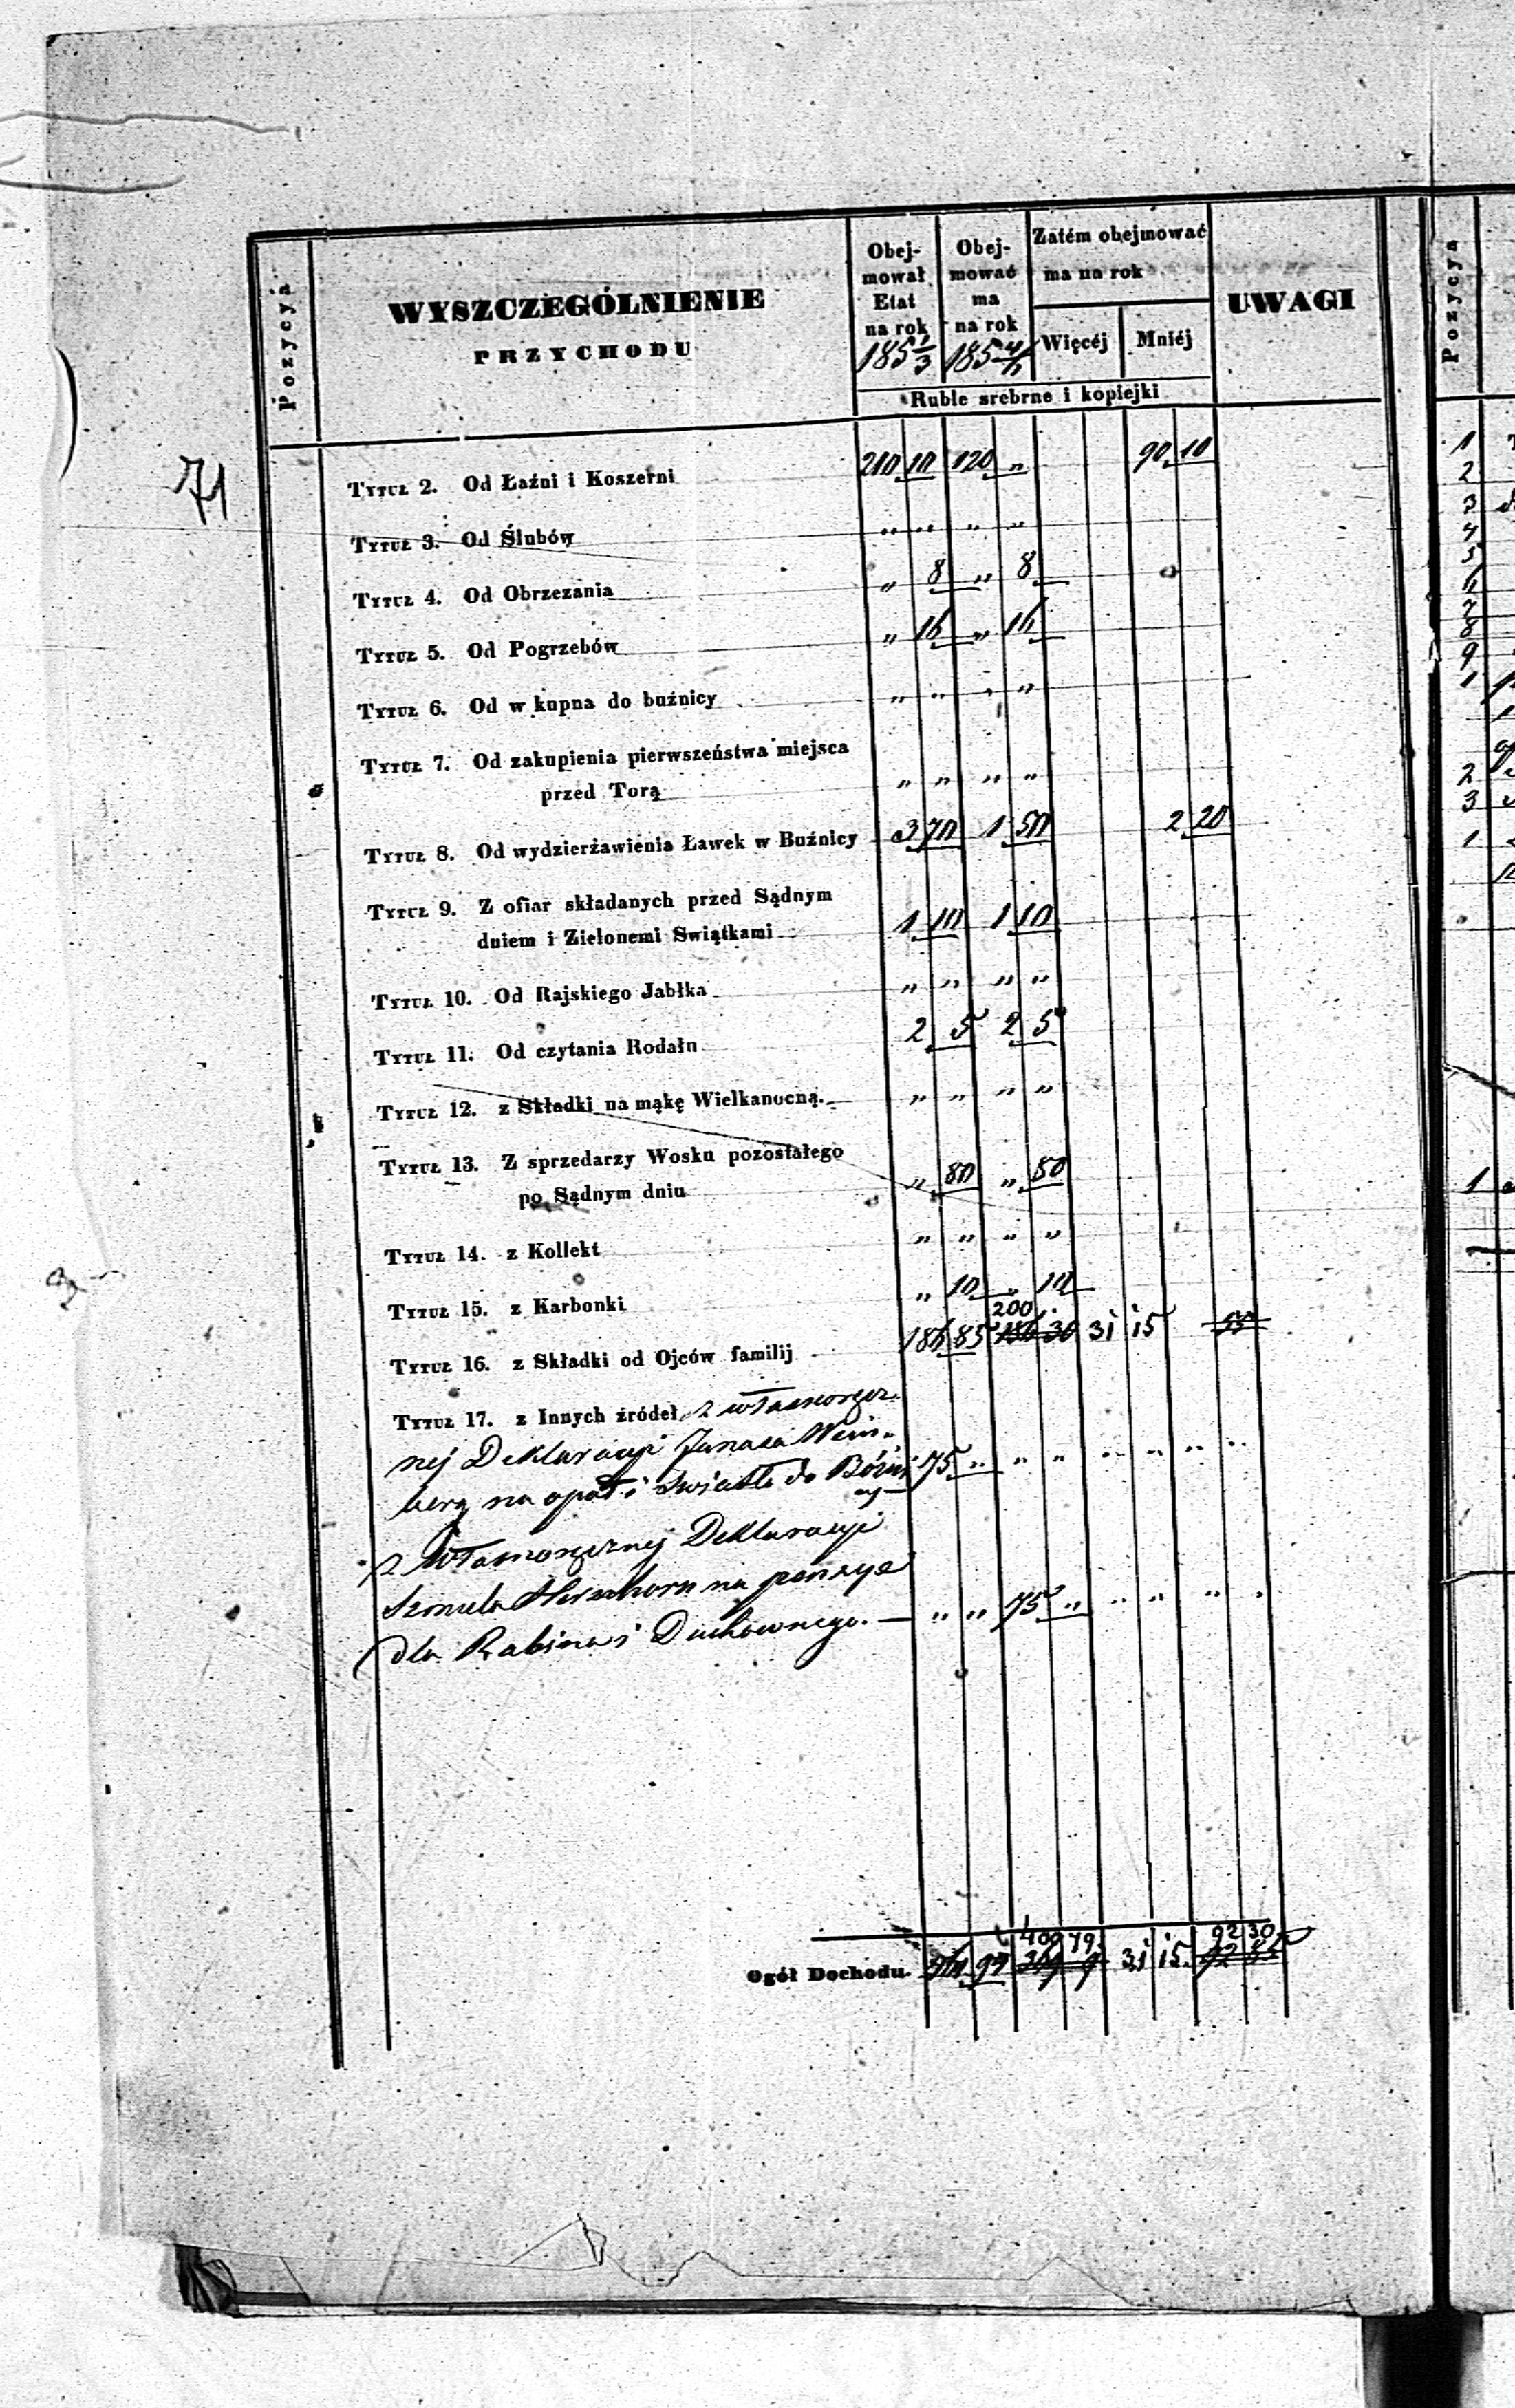 71
Pozycya
WYSZCZEGÓLNIENIE
PRZYCHODU
Obej-
mował
Etat
na rok
185 1/3
Obej-
mować
ma
na rok
185 4/6
Zatém obejmować
ma na rok
Więcéj
Mniéj
Ruble srebrne i kopiejki
UWAGI
Tytuł 2. Od Łaźni i Koszerni 210 10 120 „ 90 10
Tytuł 3. Od Ślubów „ „ „ „
Tytuł 4. Od Obrzezania „ 8 „ 8
Tytuł 5. Od Pogrzebów „ 16 „ 16
Tytuł 6. Od w kupna do buźnicy „ „ „ „
Tytuł 7. Od zakupienia pierwszeństwa miejsca
przed Torą „ „ „ „
Tytuł 8. Od wydzierżawienia Ławek w Buźnicy 3 70 1 50 2 20
Tytuł 9. Z ofiar składanych przed Sądnym
dniem i Zielonemi Swiątkami 1 10 1 10
Tytuł 10. Od Rajskiego Jabłka „ „ „ „
Tytuł 11. Od czytania Rodału 2 5 2 5
Tytuł 12. z Składki na mąkę Wielkanocną. „ „ „ „
Tytuł 13. Z sprzedarzy Wosku pozostałego
po Sądnym dniu „ 80 „ 80
Tytuł 14. z Kollekt „ „ „ „
Tytuł 15. z Karbonki „ 10 „ 10
200
Tytuł 16. z Składki od Ojców familij 186 85 186 30 31 15 55
Tytuł 17. z Innych źródeł, z własnoręcz
nej Deklaracyi Janasa Wein-
berg na opał i światło do Bóźni 75 „ „ „ „ „ „ „
cy
z Własnoręcznej Deklaracyi
Szmula na pensye
dla Rabina i Duchownego. — „ „ 75 „ „ „ „ „
400 79 92 30
Ogół Dochodu. 97 369 9 31 15 92 85
Pozycya
1
2
3
4
5
6
7
8
9
1
2
3
1
1